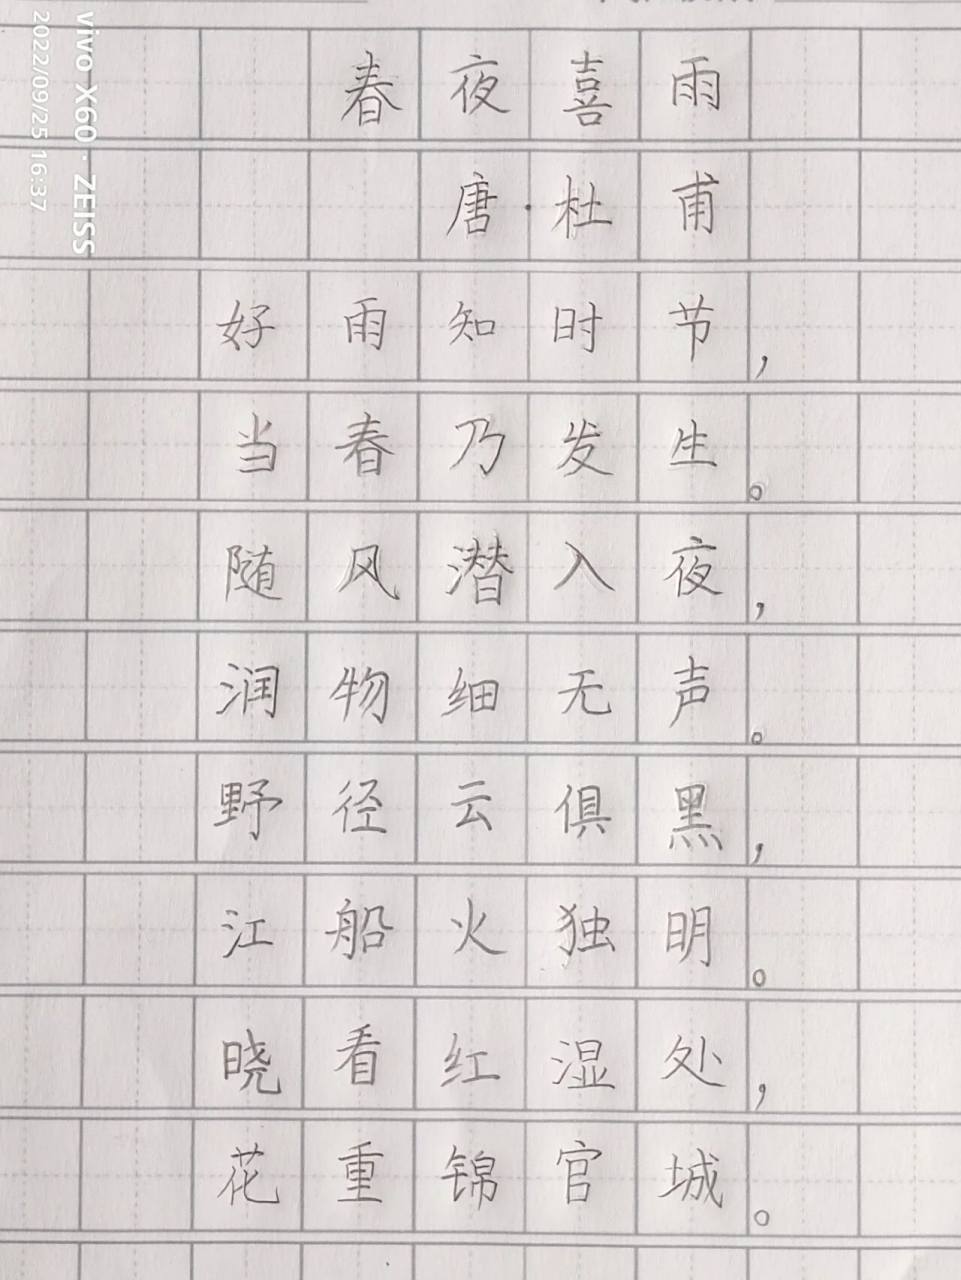 春夜喜雨
唐·杜甫
好雨知时节，
当春乃发生。
随风潜入夜，
润物细无声。
野径云俱黑，
江船火独明。
晓看红湿处，
花重锦官城。
vivo X60 · ZEISS
2022/09/25 16:37